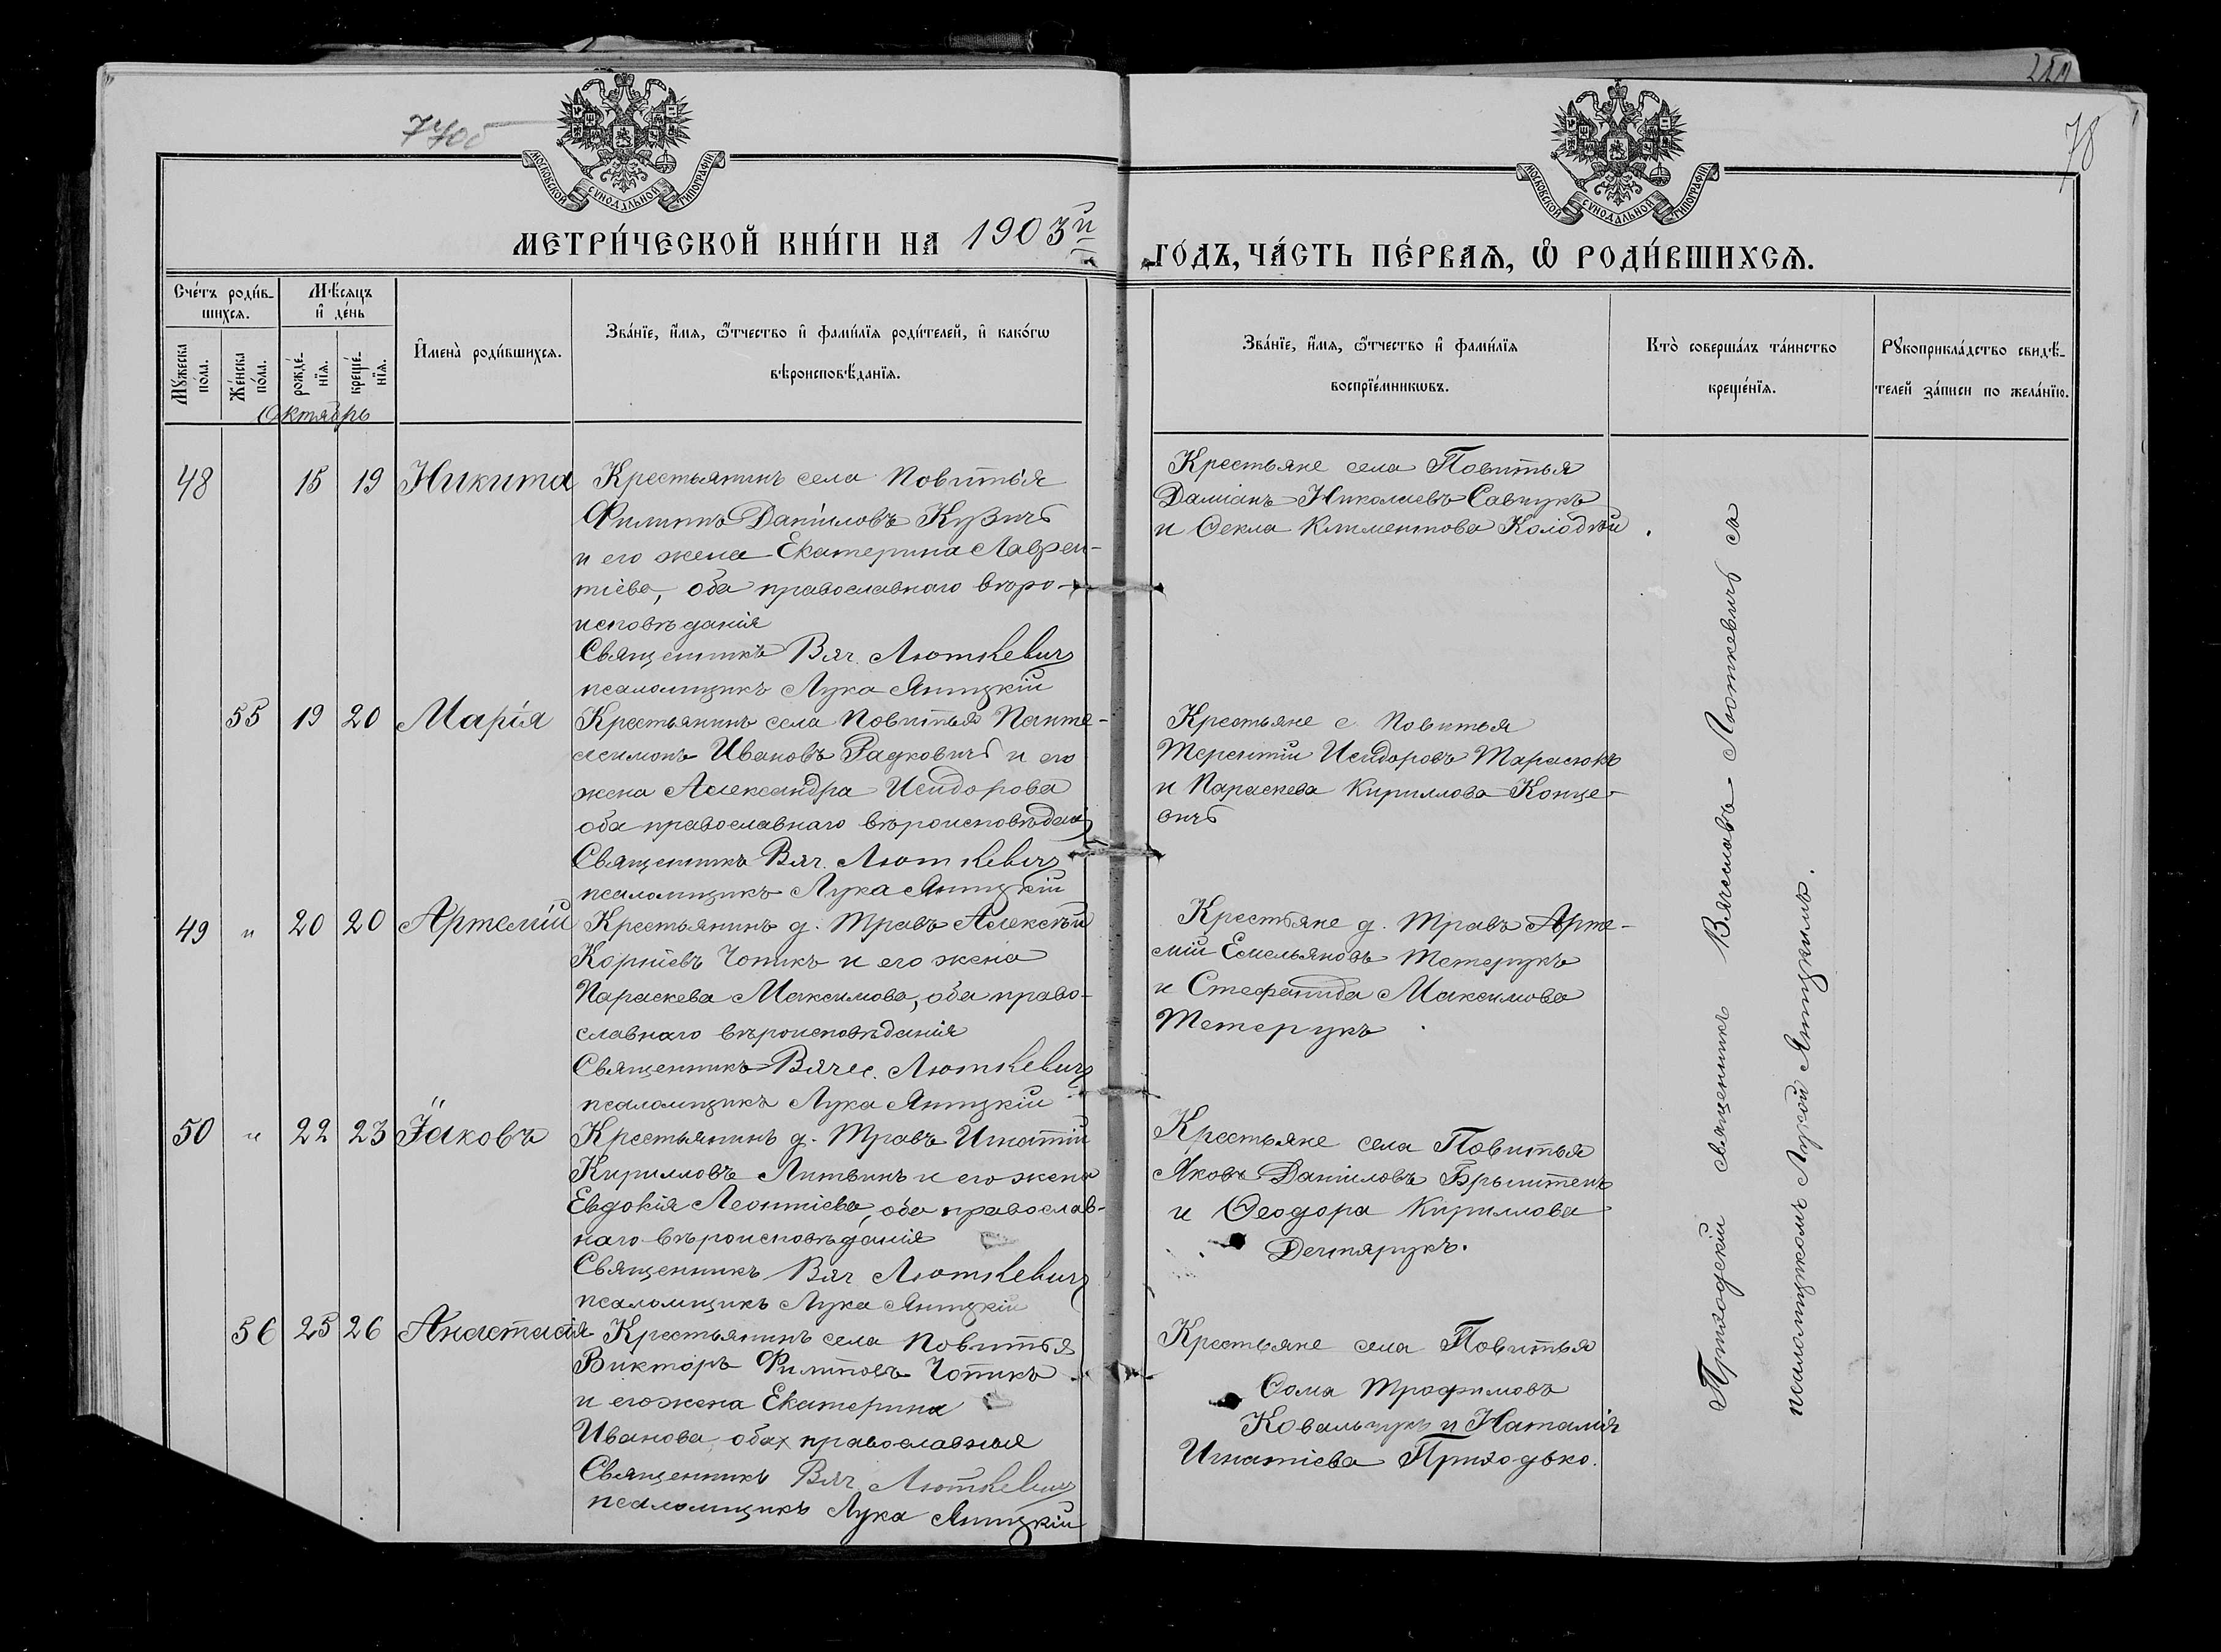 254
77об
78
МОСКОВСКОЙ СУНОДАЛЬНОЙ ТИПОГРАФІИ
МОСКОВСКОЙ СУНОДАЛЬНОЙ ТИПОГРАФІИ
МЕТРИ́ЧЕСКОЙ КНИ́ГИ НА 1903й
ГО́ДЪ, ЧА́СТЬ ПЕ́РВАѦ, Ѡ҆ РОДИ́ВШИХСѦ.
Сче́тъ роди́в-
шихсѧ.
Мꙋ́жеска
по́ла.
Же́нска
по́ла.
Мѣ́сѧцъ
и҆ де́нь
рожде́-
нїѧ.
креще́-
нїѧ.
Октябрь
И҆мена̀ роди́вшихсѧ.
Зва́нїе, и҆́мѧ, ѻ҆́тчество и҆ фами́лїѧ роди́телей, и҆ како́гѡ
вѣроисповѣ́данїѧ.
Зва́нїе, и҆́мѧ, ѻ҆́тчество и҆ фами́лїѧ
воспрїе́мникѡвъ.
Кто̀ соверша́лъ та́инство
креще́нїѧ.
Рꙋкоприкла́дство свидѣ́-
телей за́писи по жела́нїю.
48 15 19 Никита
Крестьянинъ села Повитья
Филиппъ Даніиловъ Кузичъ
и его жена Екатерина Лаврен-
тіева, оба православнаго вѣро-
исповѣданія
Священникъ Вяч. Люткевичъ
псаломщикъ Лука Яницкій
Крестьяне села Повитья
Даміанъ Николаевъ Савчукъ
и Ѳекла Климентова Колодѣй
55 19 20 Марія
Крестьянинъ села Повитья Панте-
леимонъ Ивановъ Радковичъ и его
жена Александра Исидорова
оба православнаго вѣроисповѣданія
Священникъ Вяч. Люткевичъ
псаломщикъ Лука Яницкій
Крестьяне с. Повитья
Терентій Исидоровъ Тарасюкъ
и Параскева Кириллова Конце-
вичъ
49 " 20 20 Артемій
Крестьянинъ д. Травъ Алексѣй
Корніевъ Чопикъ и его жена
Параскева Максимова, оба право-
славнаго вѣроисповѣданія
Священникъ Вячес. Люткевичъ
псаломщикъ Лука Яницкій
Крестьяне д. Травъ Арте-
мій Емельяновъ Тетерукъ
и Стефанида Максимова
Тетерукъ
50 " 22 23 Іаковъ
Крестьянинъ д. Травъ Игнатій
Кирилловъ Литвинъ и его жена
Евдокія Леонтіева, оба православ-
наго вѣроисповѣданія
Священникъ Вяч Люткевичъ
псаломщикъ Лука Яницкій
Крестьяне села Повитья
Яковъ Даніиловъ Брынтенъ
и Ѳеодора Кириллова
Дегтярукъ.
56 25 26 Анастасія
Крестьянинъ села Повитья
Викторъ Филиповъ Чопикъ
и его жена Екатерина
Иванова, оба православные
Священникъ Вяч Люткевичъ
псаломщикъ Лука Яницкій
Крестьяне села Повитья
Ѳома Трофимовъ
Ковальчукъ и Наталія
Игнатіева Приходько.
Приходскій священникъ Вячеславъ Люткевичъ съ
псаломщикомъ Лукой Яницкимъ.